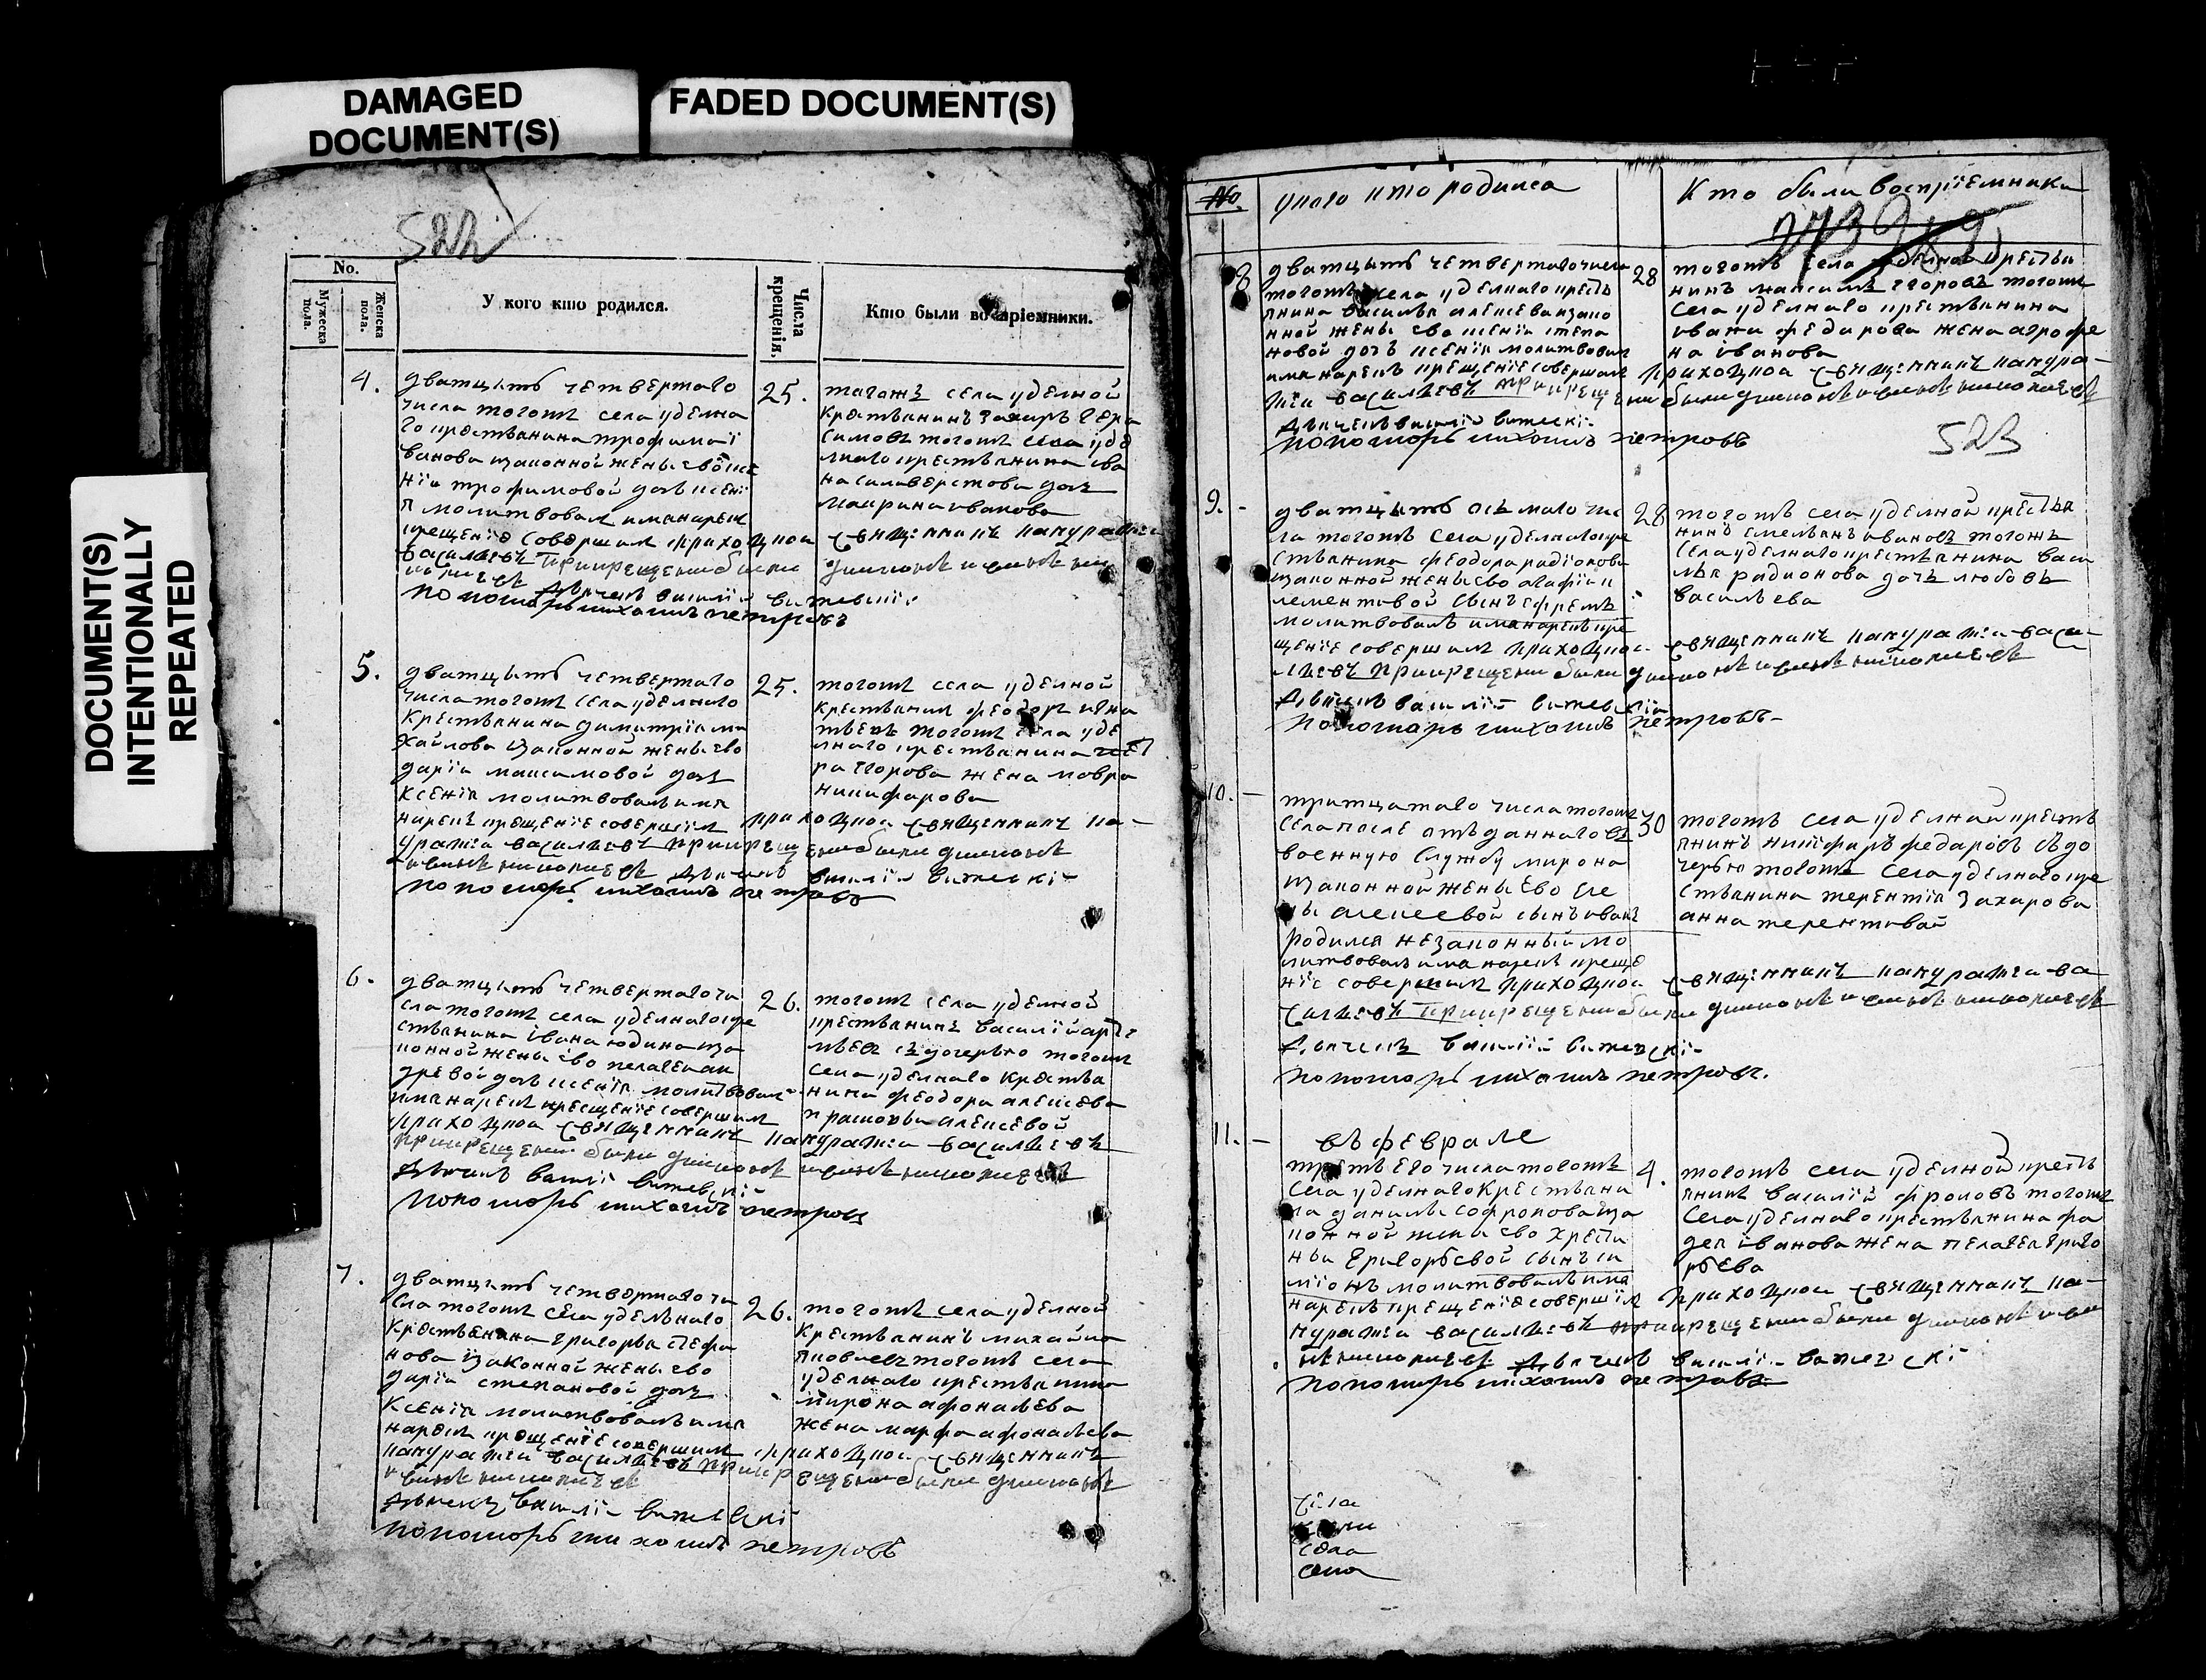 DAMAGED
DOCUMENT(S)
FADED DOCUMENT(S)
DOCUMENT(S)
INTENTIONALLY
REPEATED
522
No.
Мужеска пола.
Женска пола.
У кого кто родился.
Числа крещенія.
Кто были воспріемники.
4.
дватцать четвертаго
числа тогожъ села удѣлна
го крестьянина трофима і
ванова законной жены ево ксе
ніи трофимовой дочь ксені
я молитвовалъ имя нарекъ
крещеніе совершилъ приходской
васильевъ при крещеніи были
дьячекъ василій витевскій
пономарь михаилъ петровъ
25.
тогожъ села удѣлной
крестьянинъ захаръ гера
симовъ тогожъ села удѣ
лнаго крестьянина ива
на силаверстова дочь
маврина иванова
священникъ панкратій
5.
дватцать четвертаго
числа тогожъ села удѣлнаго
крестьянина димитрія ми
хайлова законной жены ево
дарьи максимовой дочь
ксенія молитвовалъ имя
нарекъ крещеніе совершилъ приходской священникъ пан-
кратій васильевъ при крещеніи были
дьячекъ василій витевскі-
пономарь михаилъ петровъ
25.
тогожъ села удѣлной
крестьянинъ феодоръ игна
тьевъ тогожъ села удѣ
лнаго крестьянина
егорова жена мавра
никифарова
6.
дватцать четвертаго чи
сла тогожъ села удѣлнаго кре
стьянина івана юдина за
конной жены ево пелагеи ан
дреевой дочь ксенія молитвовалъ
имя нарекъ крещеніе совершилъ
приходской священникъ панкратій васильевъ
при крещеніи были
дьячекъ василій витевскі-
пономарь михаилъ петровъ
26.
тогожъ села удѣлной
крестьянинъ василій арте
мьевъ съ дочерью тогожъ
села удѣлнаго крестья
нина феодора алексѣева
алексеевой
7.
дватцать четвертаго чи
сла тогожъ села удѣльнаго
крестьянина григорья стефа
нова законной жены ево
дарьи степановой дочь
ксенія молитвовалъ имя
нарекъ крещеніе совершилъ приходской священникъ
панкратій васильевъ при крещеніи были
дьячекъ василій витевскі
пономарь михаилъ петровъ
26.
тогожъ села удѣлной
крестьянинъ михайла
яковлевъ тогожъ села
удѣлнаго крестьянина
мирона афонасьева
жена марфа афонасьева
No.
у кого кто родился
Кто были воспріемники
8
дватцать четвертаго числа
тогожъ села удѣлнаго кресть
янина василья алексѣева зако
нной жены ево ксеніи степа
новой дочь ксенія молитвовалъ
имя нарекъ крещеніе совершилъ приходской священникъ панкра-
тій васильевъ при крещеніи были
дьячекъ василій витевскі-
пономарь михаилъ петровъ
28
тогожъ села удѣлной крестья
нинъ максимъ егоровъ тогожъ
села удѣлнаго крестьянина
ивана федарова жена агрофе
на іванова
523
9.
дватцать осьмаго чис
ла тогожъ села удѣлнаго кре
стьянина феодора радіонова
законной жены ево агафіи к
лементовой сынъ ефремъ
молитвовалъ имя нарекъ кре
щеніе совершилъ приходской священникъ панкратій васи-
льевъ при крещеніи были
дьячекъ василій витевскій
пономарь михаилъ петровъ-
28
тогожъ села удѣлной крестья
нинъ емельянъ ивановъ тогожъ
села удѣлнаго крестьянина васи
лья радионова дочь любовь
васильева
10.
тритцатаго числа тогожъ
села после отъданнаго въ
военную службу мирона
законной жены ево еле
ны алексеевой сынъ иванъ
родился незаконный мо
литвовалъ имя нарекъ креще
ніе совершилъ приходской священникъ панкратій ва
сильевъ при крещеніи были
дьячекъ василій витевскі-
пономарь михаилъ петровъ.
30
тогожъ села удѣлной кресть
янинъ никифаръ федаровъ съ до
черью тогожъ села удѣлнаго кре
стьянина терентія захарова
анна терентьевой
11.
въ феврале
третьего числа тогожъ
села удѣлнаго крестьяни
на данилы софронова за
конной жены ево хрести
ньи григорьевой сынъ си
міонъ молитвовалъ имя
нарекъ крещеніе совершилъ приходской священникъ па-
нкратій васильевъ при крещеніи были
дьячекъ василій витевскі-
пономарь михаилъ петровъ
4.
тогожъ села удѣлной кресть
янинъ василій фроловъ тогожъ
села удѣлнаго крестьянина фа
дея іванова жена пелагея григо
рьева
села
села
села